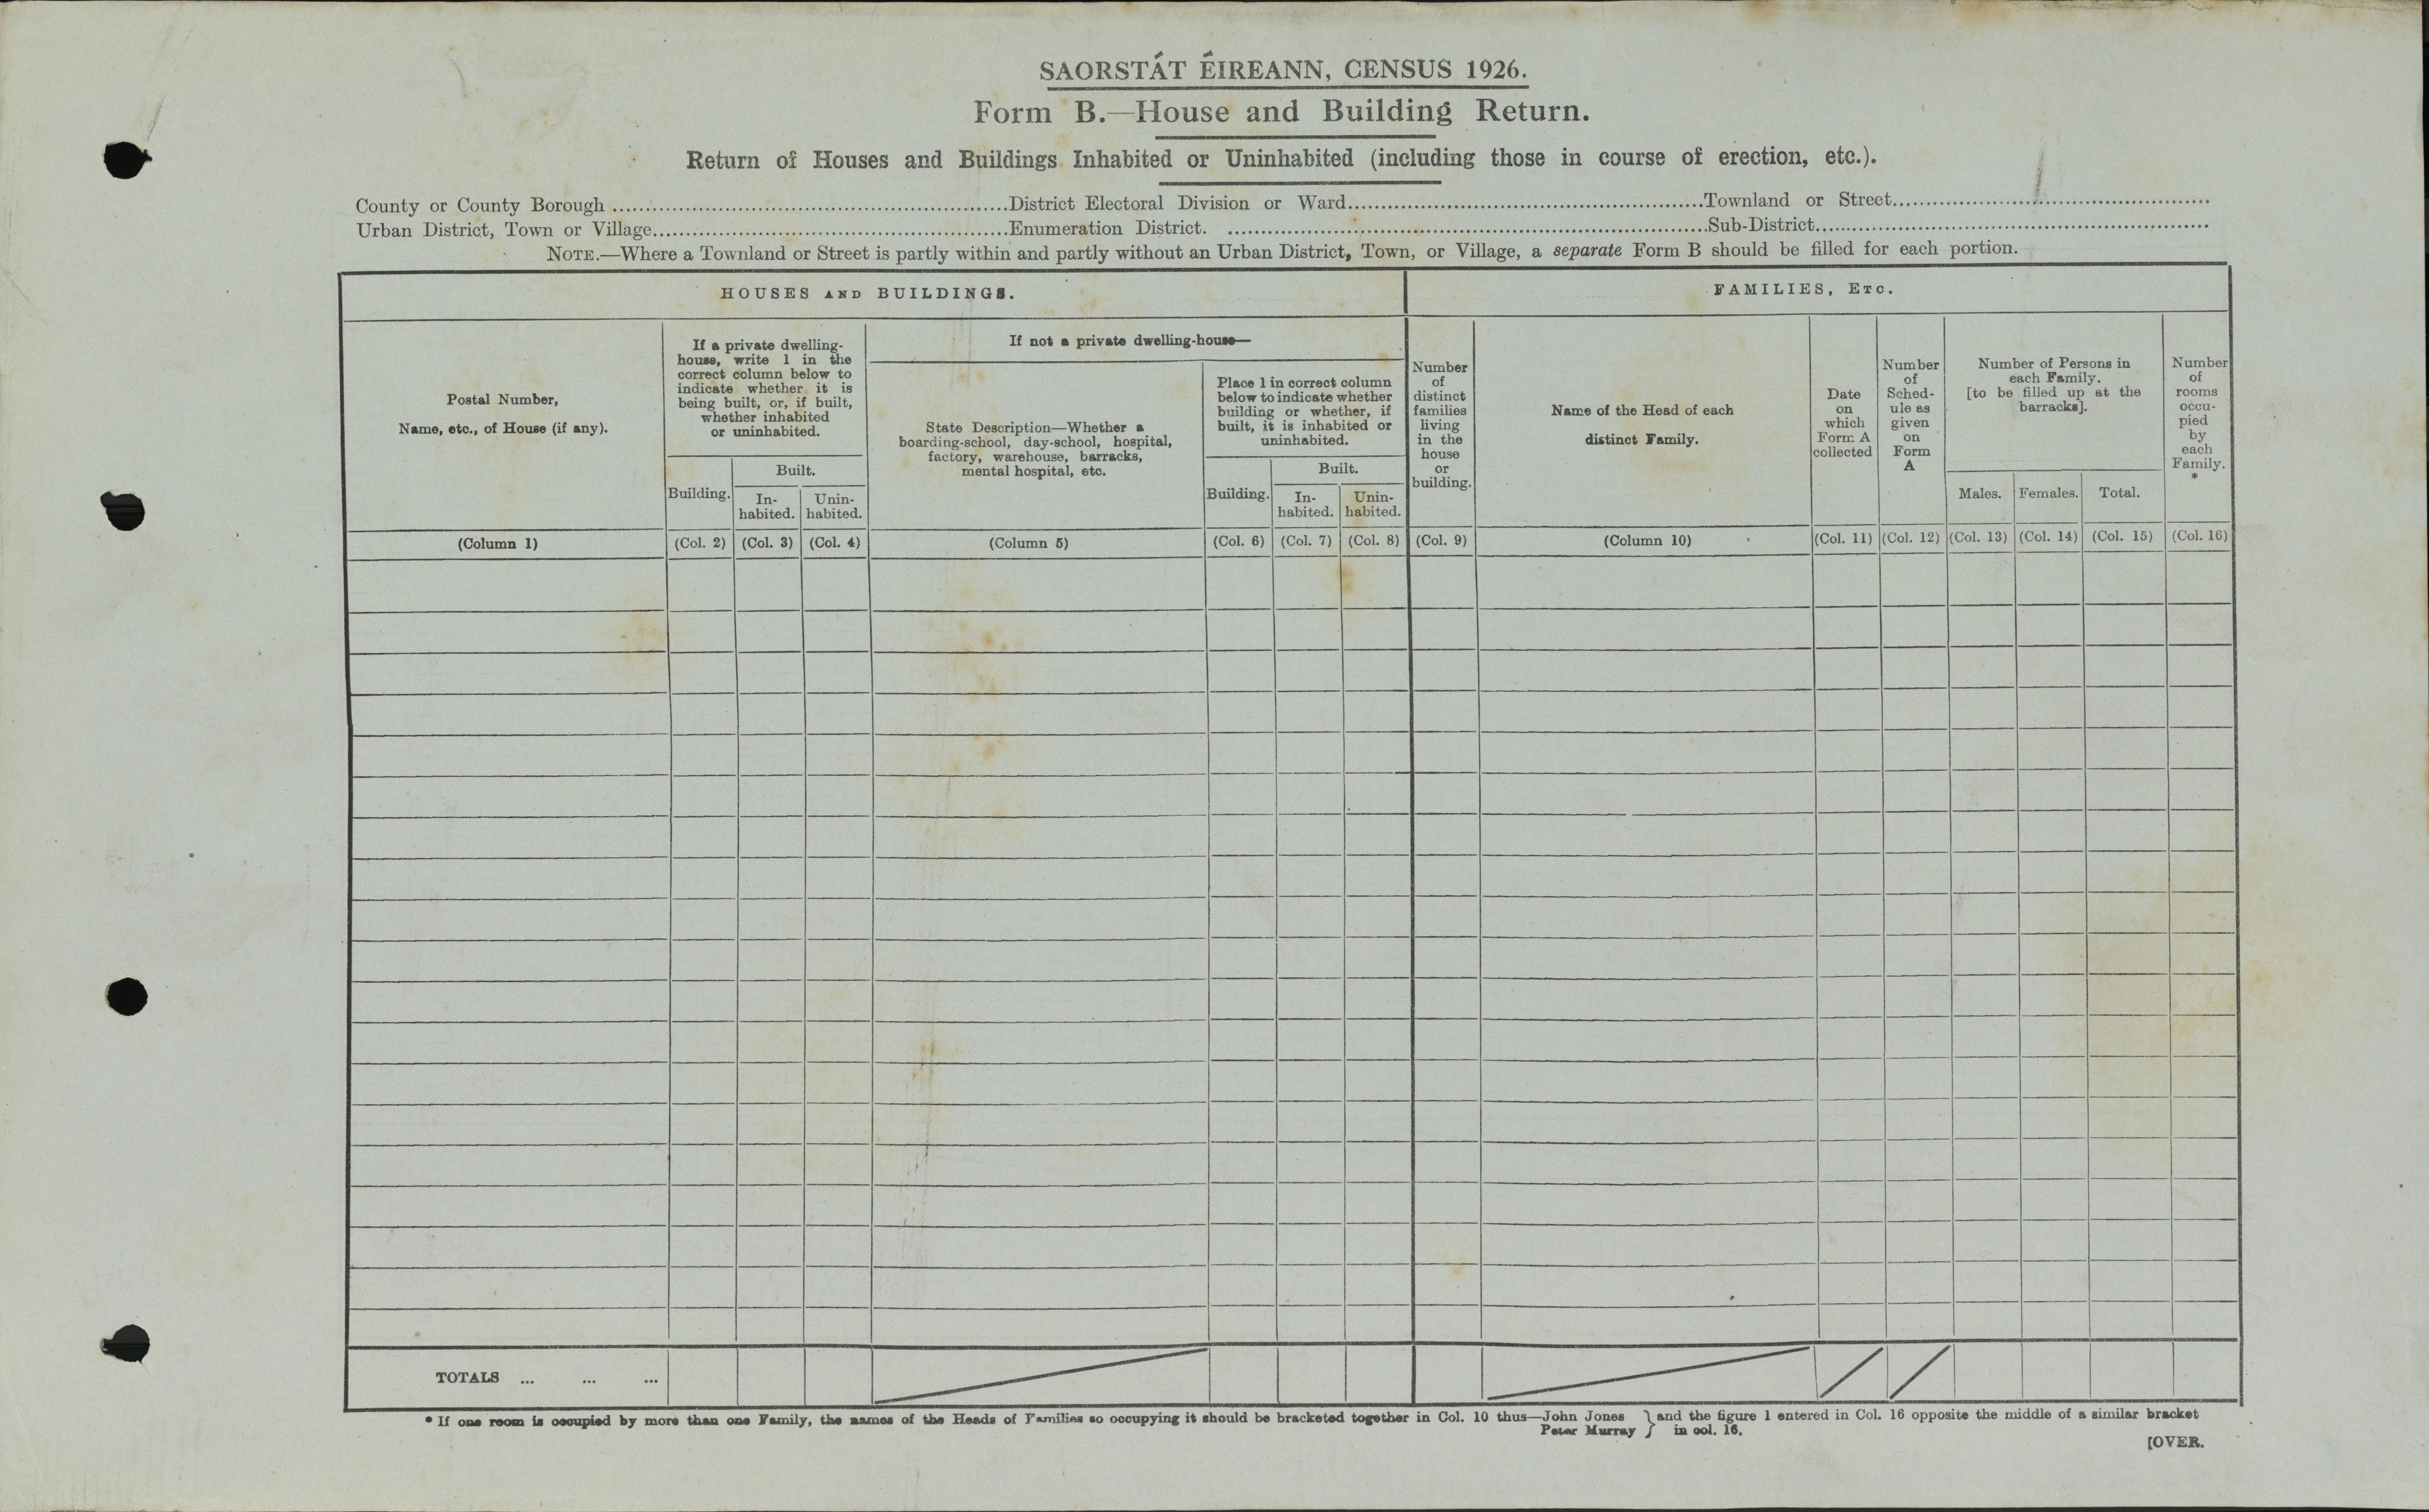 SAORSTÁT ÉIREANN, CENSUS 1926.
Form B.—House and Building Return.
Return of Houses and Buildings Inhabited or Uninhabited (including those in course of erection, etc.).
County or County Borough ........................District Electoral Division or Ward........................Townland or Street........................
Urban District, Town or Village........................Enumeration District. ........................Sub-District........................
NOTE.—Where a Townland or Street is partly within and partly without an Urban District, Town, or Village, a separate Form B should be filled for each portion.
HOUSES AND BUILDINGS.
FAMILIES, ETC.
Postal Number,
Name, etc., of House (if any).
If a private dwelling-
house, write 1 in the
correct column below to
indicate whether it is
being built, or, if built,
whether inhabited
or uninhabited.
Building.
Built.
In-
habited.
Unin-
habited.
If not a private dwelling-house—
State Description—Whether a
boarding-school, day-school, hospital,
factory, warehouse, barracks,
mental hospital, etc.
Place 1 in correct column
below to indicate whether
building or whether, if
built, it is inhabited or
uninhabited.
Building.
Built.
In-
habited.
Unin-
habited.
Number
of
distinct
families
living
in the
house
or
building.
Name of the Head of each
distinct Family.
Date
on
which
Form A
collected
Number
of
Sched-
ule as
given
on
Form
A
Number of Persons in
each Family.
[to be filled up at the
barracks].
Males.
Females.
Total.
Number
of
rooms
occu-
pied
by
each
Family.
*
(Column 1)
(Col. 2)
(Col. 3)
(Col. 4)
(Column 5)
(Col. 6)
(Col. 7)
(Col. 8)
(Col. 9)
(Column 10)
(Col. 11)
(Col. 12)
(Col. 13)
(Col. 14)
(Col. 15)
(Col. 16)
TOTALS ... ... ...
* If one room is occupied by more than one Family, the names of the Heads of Families so occupying it should be bracketed together in Col. 10 thus—John Jones } and the figure 1 entered in Col. 16 opposite the middle of a similar bracket
Peter Murray } in col. 16.
[OVER.